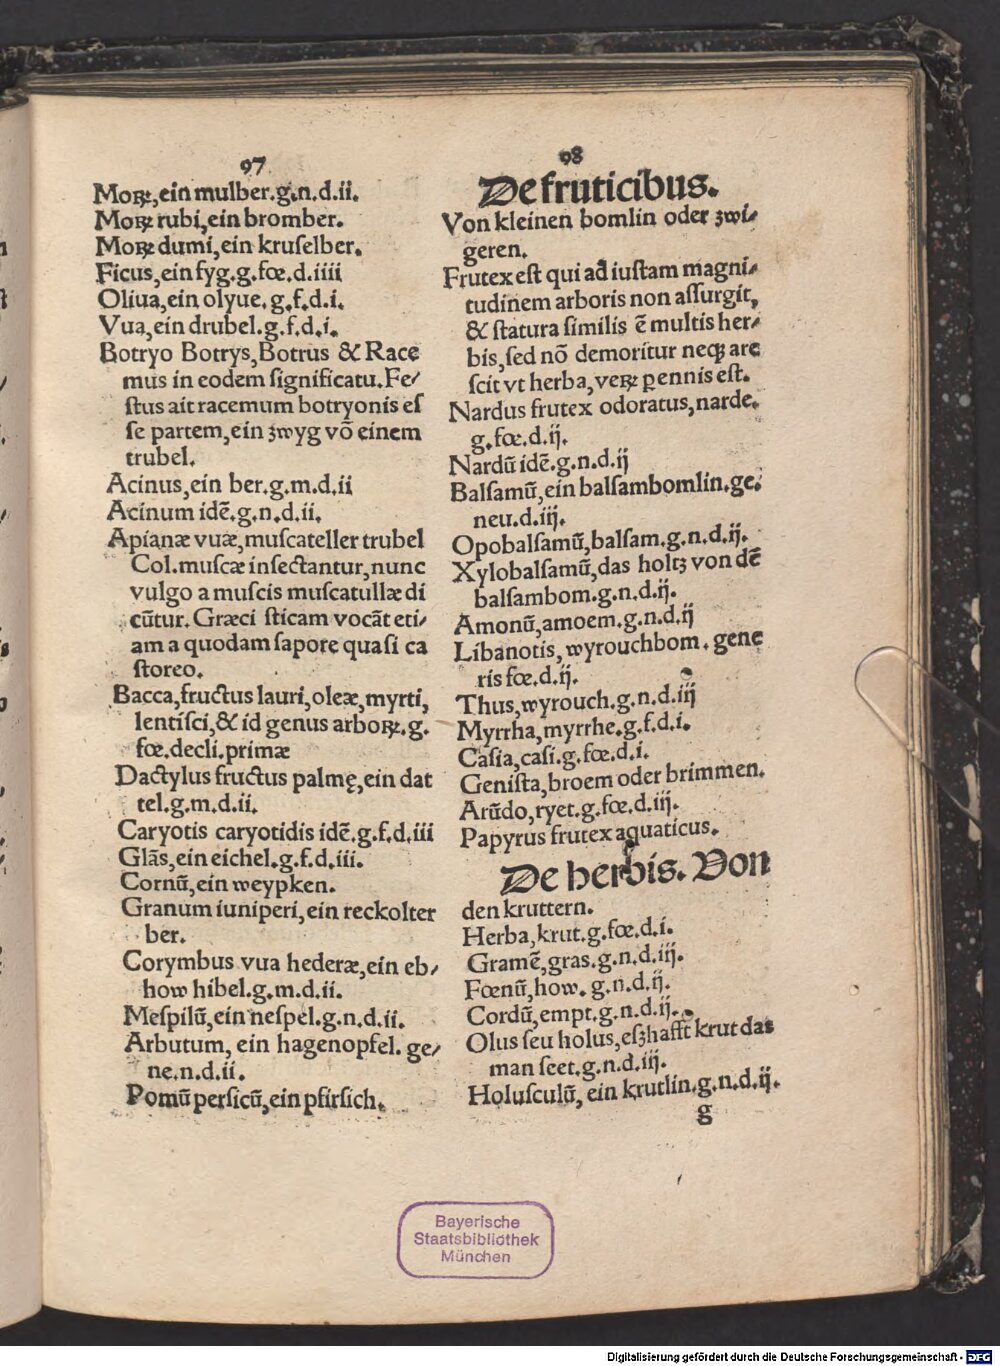 97
Moꝝ, ein mulber.g.n.d.ii.
Moꝝ rubi, ein bromber.
Moꝝ dumi, ein kruſelber.
Ficus, ein fyg.g.fœ.d.iiii
Oliua, ein olyue.g.f.d.i.
Vua, ein drubel.g.f.d.i.
Botryo Botrys, Botrus & Race
mus in eodem ſignificatu. Fe⸗
ſtus ait racemum botryonis eſ
ſe partem, ein zwyg vō einem
trubel.
Acinus, ein ber.g.m.d.ii
Acinum idē.g.n.d.ii.
Apianæ vuæ, muſcateller trubel
Col. muſcæ inſectantur, nunc
vulgo a muſcis muſcatullæ di
cūtur. Græci ſticam vocāt eti⸗
am a quodam ſapore quaſi ca
ſtoreo.
Bacca, fructus lauri, oleæ, myrti,
lentiſci, & id genus arboꝝ.g.
fœ.decli.primæ
Dactylus fructus palmę, ein dat
tel.g.m.d.ii.
Caryotis caryotidis idē.g.f.d.iii
Glās, ein eichel.g.f.d.iii.
Cornū, ein weypken.
Granum iuniperi, ein reckolter
ber.
Corymbus vua hederæ, ein eb⸗
how hibel.g.m.d.ii.
Meſpilū, ein neſpel.g.n.d.ii.
Arbutum, ein hagenopfel.ge⸗
ne.n.d.ii.
Pomū perſicū, ein pfirſich.
98
De fruticibus.
Von kleinen bomlin oder zwi⸗
geren.
Frutex eſt qui ad iuſtam magni⸗
tudinem arboris non aſſurgit,
& ſtatura ſimilis ē multis her⸗
bis, ſed nō demoritur neqꝫ are
ſcit vt herba, veꝝ ꝑennis eſt.
Nardus frutex odoratus, narde.
g.fœ.d.ij.
Nardū idē.g.n.d.ij
Balſamū, ein balſambomlin.ge.
neu.d.iij.
Opobalſamū, balſam.g.n.d.ij.
Xylobalſamū, das holtz von dē
balſambom.g.n.d.ij.
Amonū, amoem.g.n.d.ij
Libanotis, wyrouchbom.gene
ris fœ.d.ij.
Thus, wyrouch.g.n.d.iij
Myrrha, myrrhe.g.f.d.i.
Caſia, caſi.g.fœ.d.i.
Geniſta, broem oder brimmen.
Arūdo, ryet.g.fœ.d.iij.
Papyrus frutex aquaticus.
De herbis. Von
den kruttern.
Herba, krut.g.fœ.d.i.
Gramē, gras.g.n.d.iij.
Fœnū, how.g.n.d.ij.
Cordū, empt.g.n.d.ij.
Olus ſeu holus, eſzhafft krut das
man ſeet.g.n.d.iij.
Holuſculū, ein krutlin.g.n.d.ij.
g
Bayerische
Staatsbibliothek
München
Digitalisierung gefördert durch die Deutsche Forschungsgemeinschaft - DFG